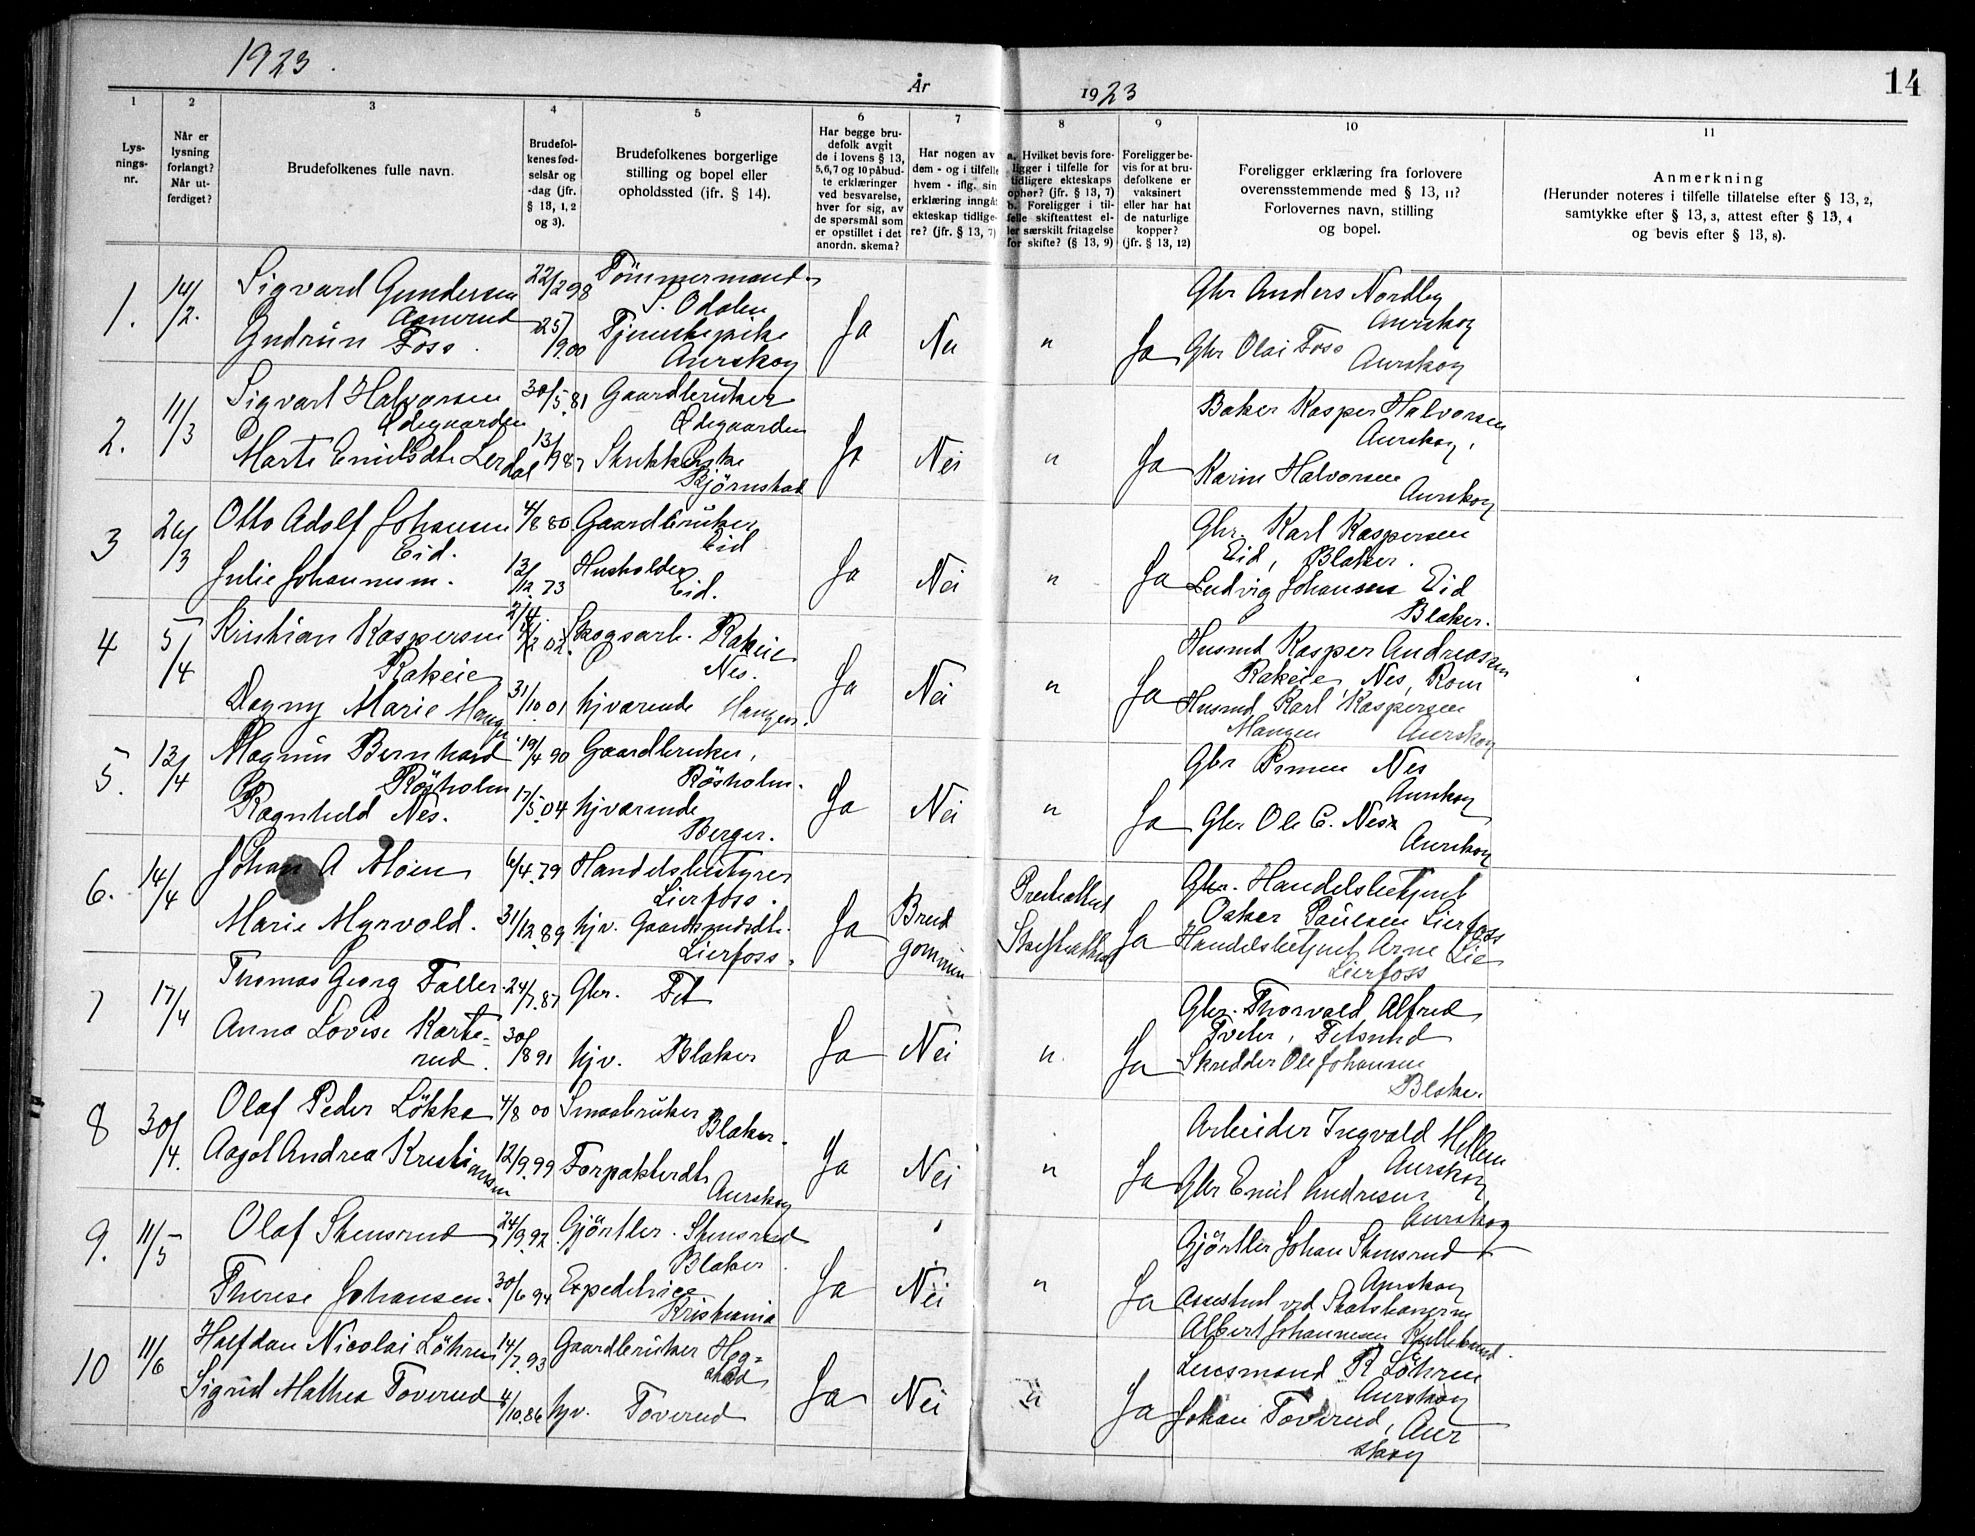 1923.
År
1923
14
1
2
3
4
5
6
7
8
9
10
11
Lys-
nings-
nr.
Når er
lysning
forlangt?
Når ut-
ferdiget?
Brudefolkenes fulle navn.
Brudefol-
kenes fød-
selsår og
-dag (jfr.
§ 13, 1, 2
og 3).
Brudefolkenes borgerlige
stilling og bopel eller
opholdssted (ifr. § 14).
Har begge bru-
defolk avgit
de i lovens § 13,
5,6,7 og 10 påbud-
te erklæringer
ved besvarelse,
hver for sig, av
de spørsmål som
er opstillet i det
anordn. skema?
Har nogen av
dem - og i tilfelle
hvem - iflg. sin
erklæring inngåt
ekteskap tidlige-
re? (jfr. § 13, 7)
a. Hvilket bevis fore-
ligger i tilfelle for
tidligere ekteskaps
ophør? (jfr. § 13, 7)
b. Foreligger i til-
felle skifteattest el-
ler særskilt fritagelse
for skifte? (§ 13, 9)
Foreligger be-
vis for at bru-
defolkene er
vaksinert
eller har hat
de naturlige
kopper?
(jfr. § 13, 12)
Foreligger erklæring fra forlovere
overensstemmende med § 13, 11?
Forlovernes navn, stilling
og bopel.
Anmerkning
(Herunder noteres i tilfelle tillatelse efter § 13, 2,
samtykke efter § 13, 3, attest efter § 13, 4
og bevis efter § 13, 8).
1. 14/2. Sigvard Gundersen 22/2 98 Tömmermand
Aamerud S. Odalen
Gudrun Foss. 25/9 00 Tjenestepike
Aurskog
Ja " Ja
Gbr Anders Nordby
Aurskog
Gbr Olai Foss
Aurskog
2. 11/3 Sigvart Halvorsen 30/5 81 Gaardbruker
Ødegaarden Ødegaarden
Marte Emilsdtr Lerdal
Björnstad
Ja Nei " Ja
Baker Kasper Halvorsen
Aurskog,
Karin Halvorsen
Aurskog
3 /3 Otto Adolf Johansen 4/8 80 Gaardbruker
Eid. Eid
Julie Johannesen. 13/12. 73 Husholder
Eid.
Ja Nei " Ja
Gbr. Karl Kaspersen
Eid, Blaker.
Ludvig Johansen Eid
Blaker.
4 5/4 Kristian Kaspersen 02. Skogsarb. Rakeie
Rakeie Nes.
Dagny Marie Mangen 31/10 01 hjværende Mangen.
Ja Nei " Ja
Husmd Kasper Andreassen
Rakeie, Nes, Rom
Husmd Karl Kaspersen
Mangen Aurskog
5. 13/4 Magnus Bernhard 19/4 90 Gaardbruker,
Rösholm Rösholm.
Ragnhild Nes. 17/5 04 hjværende
Berger.
Ja Nei " Ja
Gbr Nes
Aurskog
Gbr Ole C. Nes
Aurskog
6. 14/4 Johan A Moen 6/4. 79 Handelsbestyrer
Lierfoss.
Marie Myrvold. 31/12 89 hjv. Gaardmandsdtr.
Lierfoss.
Ja Brud
gommen
Presteattest
Skifteattest
Ja
Gbr. Handelsbetjent
Oskar Paulsen Lierfoss
Handelsbetjent Arne Lie
Lierfoss
7 17/4 Thomas Georg Faller 24/7. 87 Gbr. Fet
Anna Lovise Karte-
rud. 30/8 91 hjv. Blaker
Ja Nei " Ja
Gbr. Thorvald Alfred
Tveter, Fetsund
Skredder Ole Johansen
Blaker.
8 30/4. Olaf Peder Lökke 4/8 00 Smaabruker
Blaker.
Aagot Andrea Kristiansen 12/9. 99 Forpakterdtr
Aurskog
Ja Nei " Ja
Arbeider Ingvald Hellen
Aurskog
Gbr Emil Andresen
Aurskog
9. 11/5 Olaf Stensrud 24/9. 92 Gjörtler. Stensrud
Blaker
Therese Johansen. 30/6 94 Expeditrice
Kristiania
Ja Nei " Ja
Gjörtler Johan Stensrud
Aurskog
Assistent ved Statsbanerne
Albert Johannesen
10 11/6 Halfdan Nicolai Löhren 14/7. 93 Gaardbruker Hog-
stad
Sigrid Mathea Toverud 4/10. 86 hjv. Toverud
Ja Nei " Ja
Lensmand R Löhren
Aurskog
Johan Toverud, Aur
skog